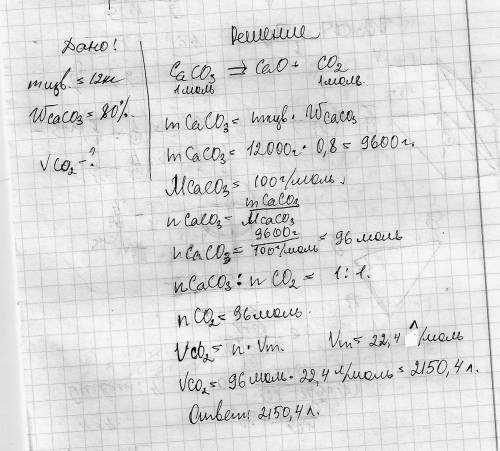 Дано!
m изв. = 12кг
WCaCO₃ = 80%.
VCO₂ - ?
Решение
CaCO₃ ⇒ CaO + CO₂
1моль 1моль
mCaCO₃ = mизв · WCaCO₃
mCaCO₃ = 12000г · 0,8 = 9600г.
MCaCO₃ = 100г/моль.
nCaCO₃ = mCaCO₃/MCaCO₃
nCaCO₃ = 9600г/100г/моль = 96моль
nCaCO₃ : nCO₂ = 1:1.
nCO₂ = 96моль.
VCO₂ = n · Vm. Vm = 22,4 л/моль
VCO₂ = 96моль · 22,4 л/моль = 2150,4 л.
Ответ: 2150,4 л.